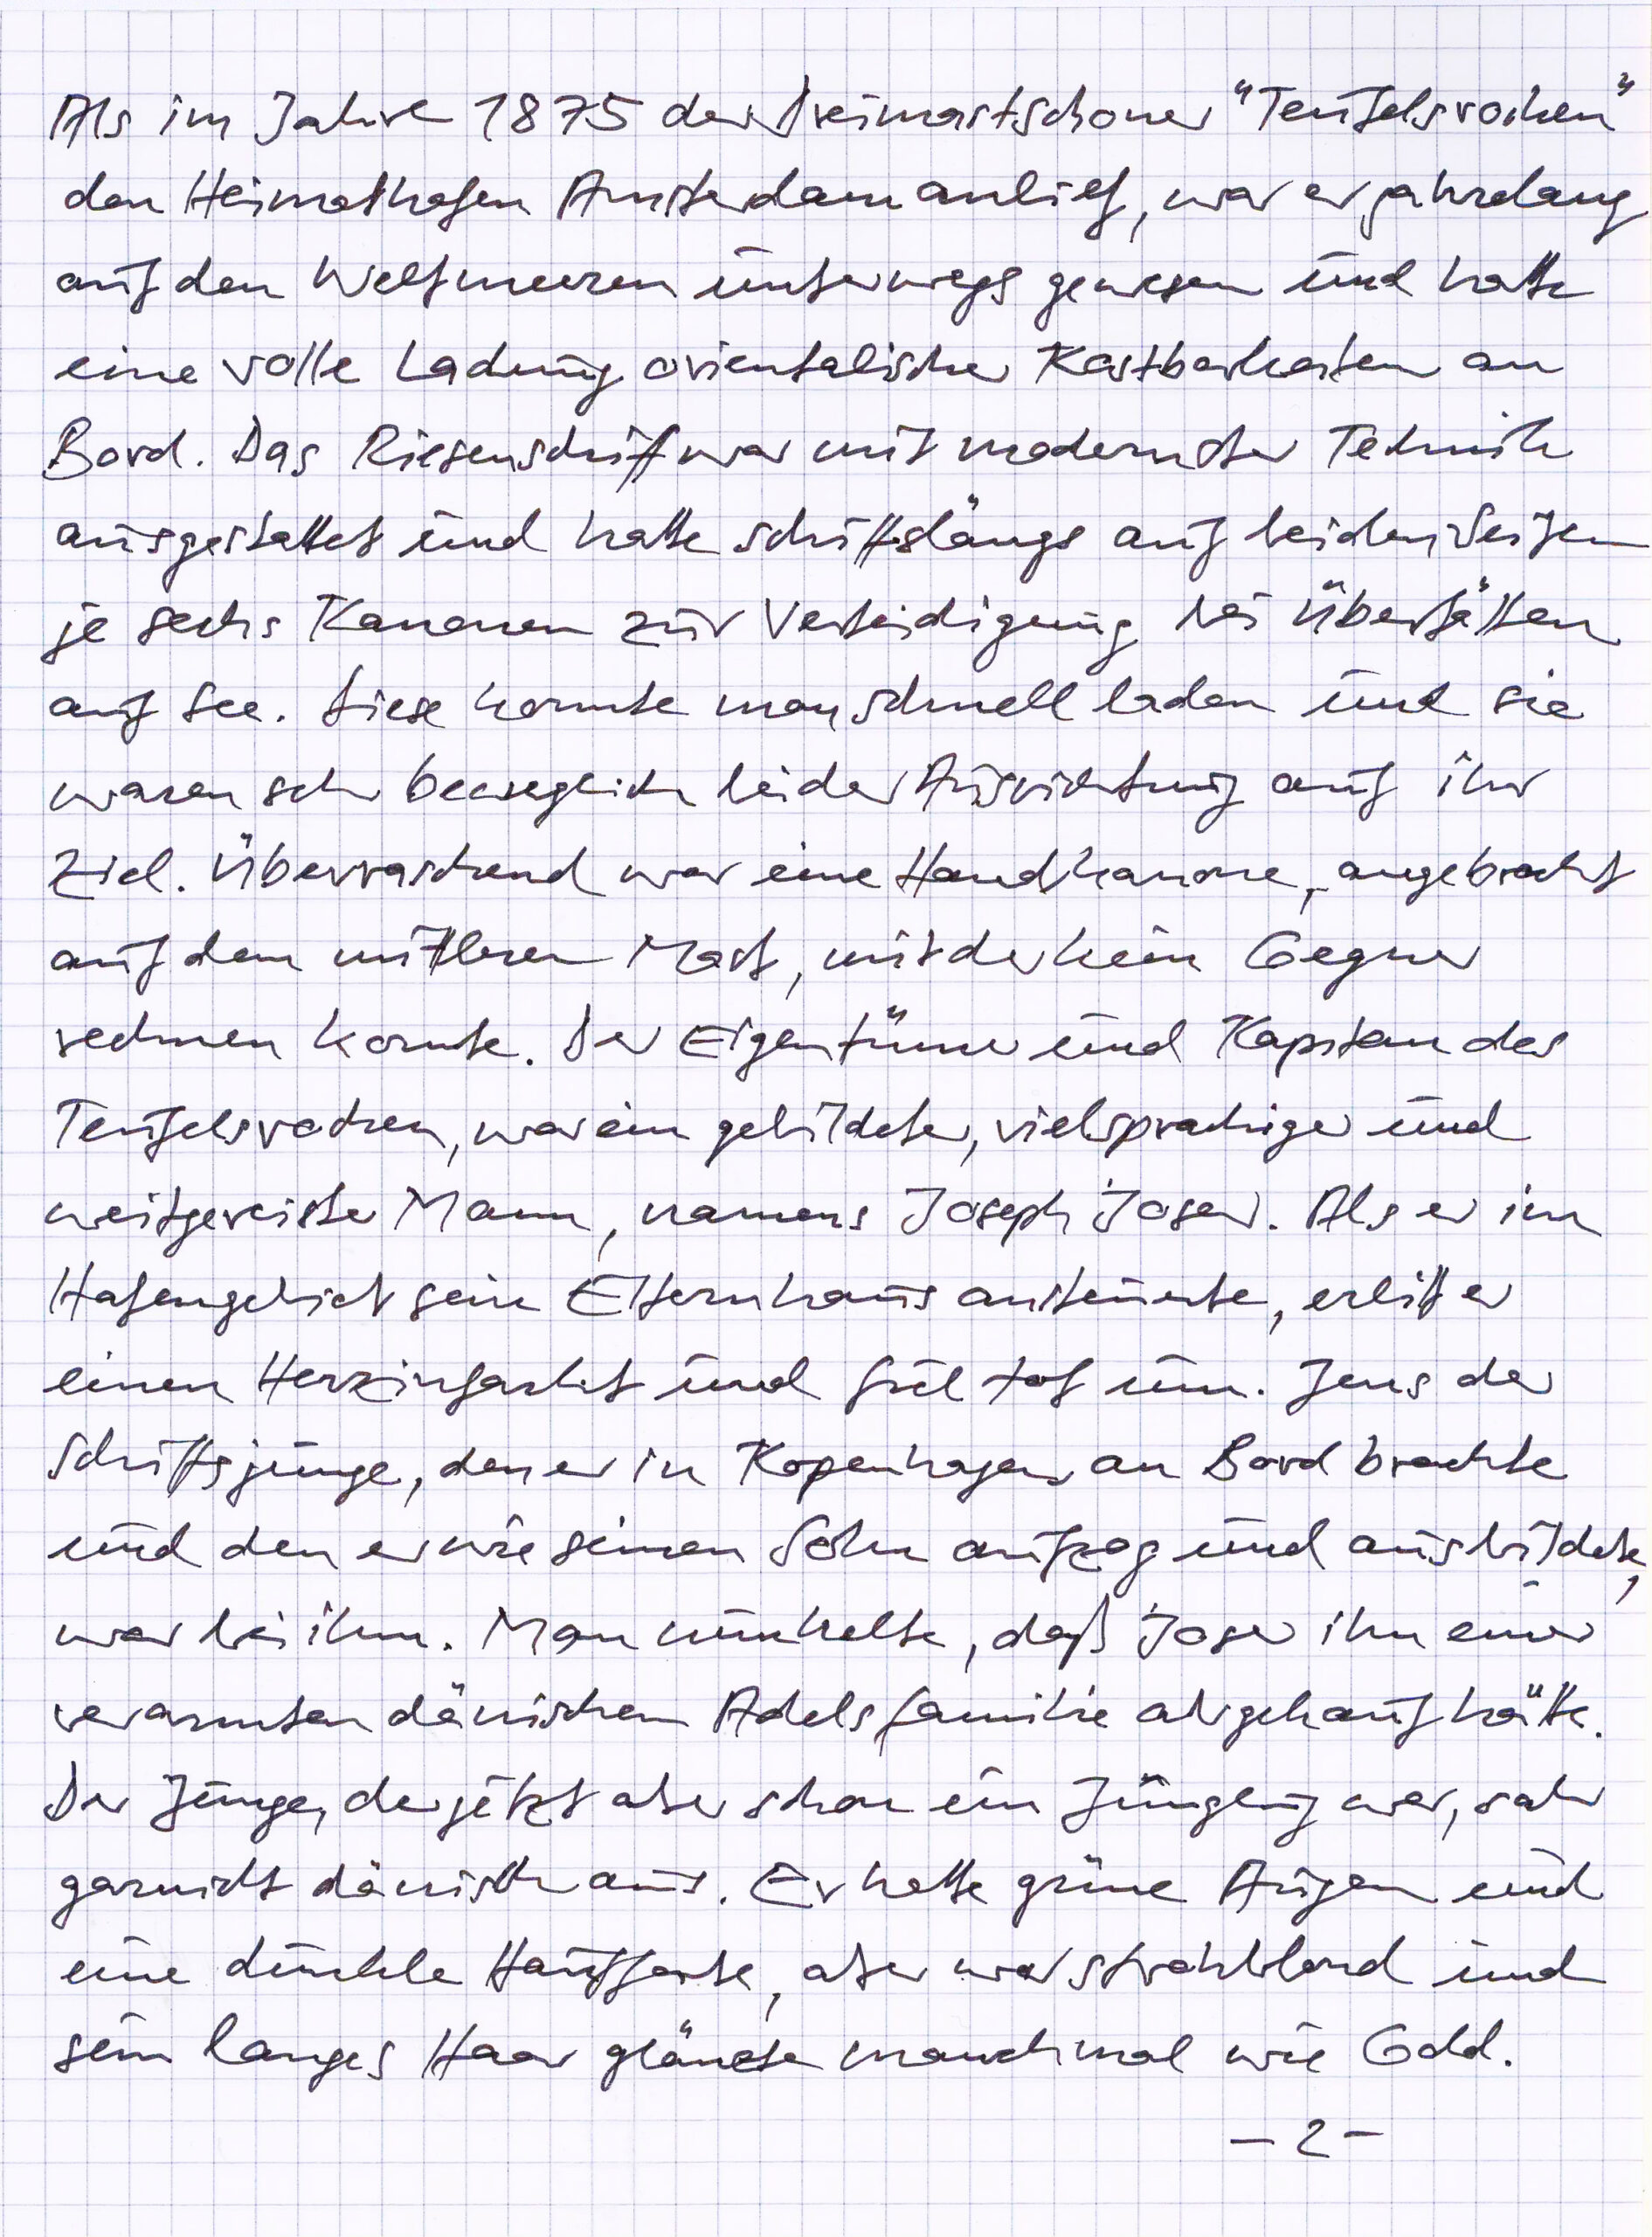 Als im Jahre 1875 der Dreimastschoner "Teufelsrochen"
den Heimathafen Amsterdam anlief, war er jahrelang
auf den Weltmeeren unterwegs gewesen und hatte
eine volle Ladung orientalischer Kostbarkeiten an
Bord. Das Riesenschiff war mit modernster Technik
ausgestattet und hatte schiffslängs auf beiden Seiten
je sechs Kanonen zur Verteidigung bei Überfällen
auf See. Diese konnte man schnell laden und sie
waren sehr beweglich bei der Ausrichtung auf ihr
Ziel. Überraschend war eine Handkanone, angebracht
auf dem mittleren Mast, mit der kein Gegner
rechnen konnte. Der Eigentümer und Kapitan des
Teufelsrochen, war ein gebildeter, vielsprachiger und
weitgereister Mann, namens Joseph Joser. Als er im
Hafengebiet sein Elternhaus ansteuerte, erlitt er
einen Herzinfarkt und fiel tot um. Jens der
Schiffsjunge, den er in Kopenhagen an Bord brachte
und den er wie seinen Sohn aufzog und ausbildete,
war bei ihm. Man munkelte, daß Joser ihn einer
verarmten dänischen Adelsfamilie abgekauft hätte.
Der Junge, der jetzt aber schon ein Jüngling war, sah
garnicht dänisch aus. Er hatte grüne Augen und
eine dunkle Hautfarbe, aber war strohblond und
sein langes Haar glänzte manchmal wie Gold.
- 2 -